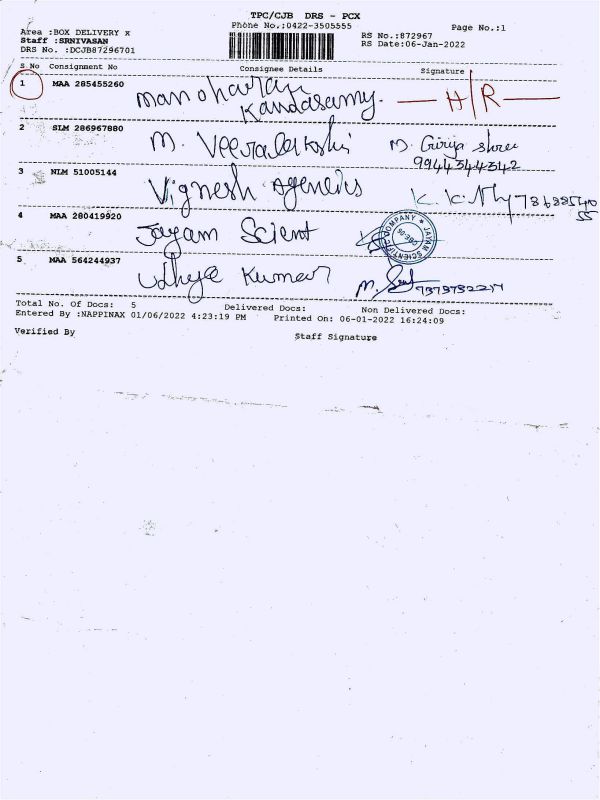 TPC/CJB DRS - PCX
Phone No.:0422-3505555
Page No.:1
Area :BOX DELIVERY x
RS No.:872967
Staff :SRNIVASAN
RS Date:06-Jan-2022
DRS No. :DCJB87296701
S No Consignment No Consignee Details Signature
1 MAA 285455260 manoharan
Kandasamy. H/R
2 SLM 286967880 M. Veeralakshi M. Giriya shree
9944344342
3 NLM 51005144 Vignesh Agencies
4 MAA 280419920 Jayam Scient COMPANY ★ JAYAN SCIENTIFIC
5 MAA 564244937 Udhya Kumar
Total No. Of Docs: 5 Delivered Docs: Non Delivered Docs:
Entered By :NAPPINAX 01/06/2022 4:23:19 PM Printed On: 06-01-2022 16:24:09
Verified By Staff Signature